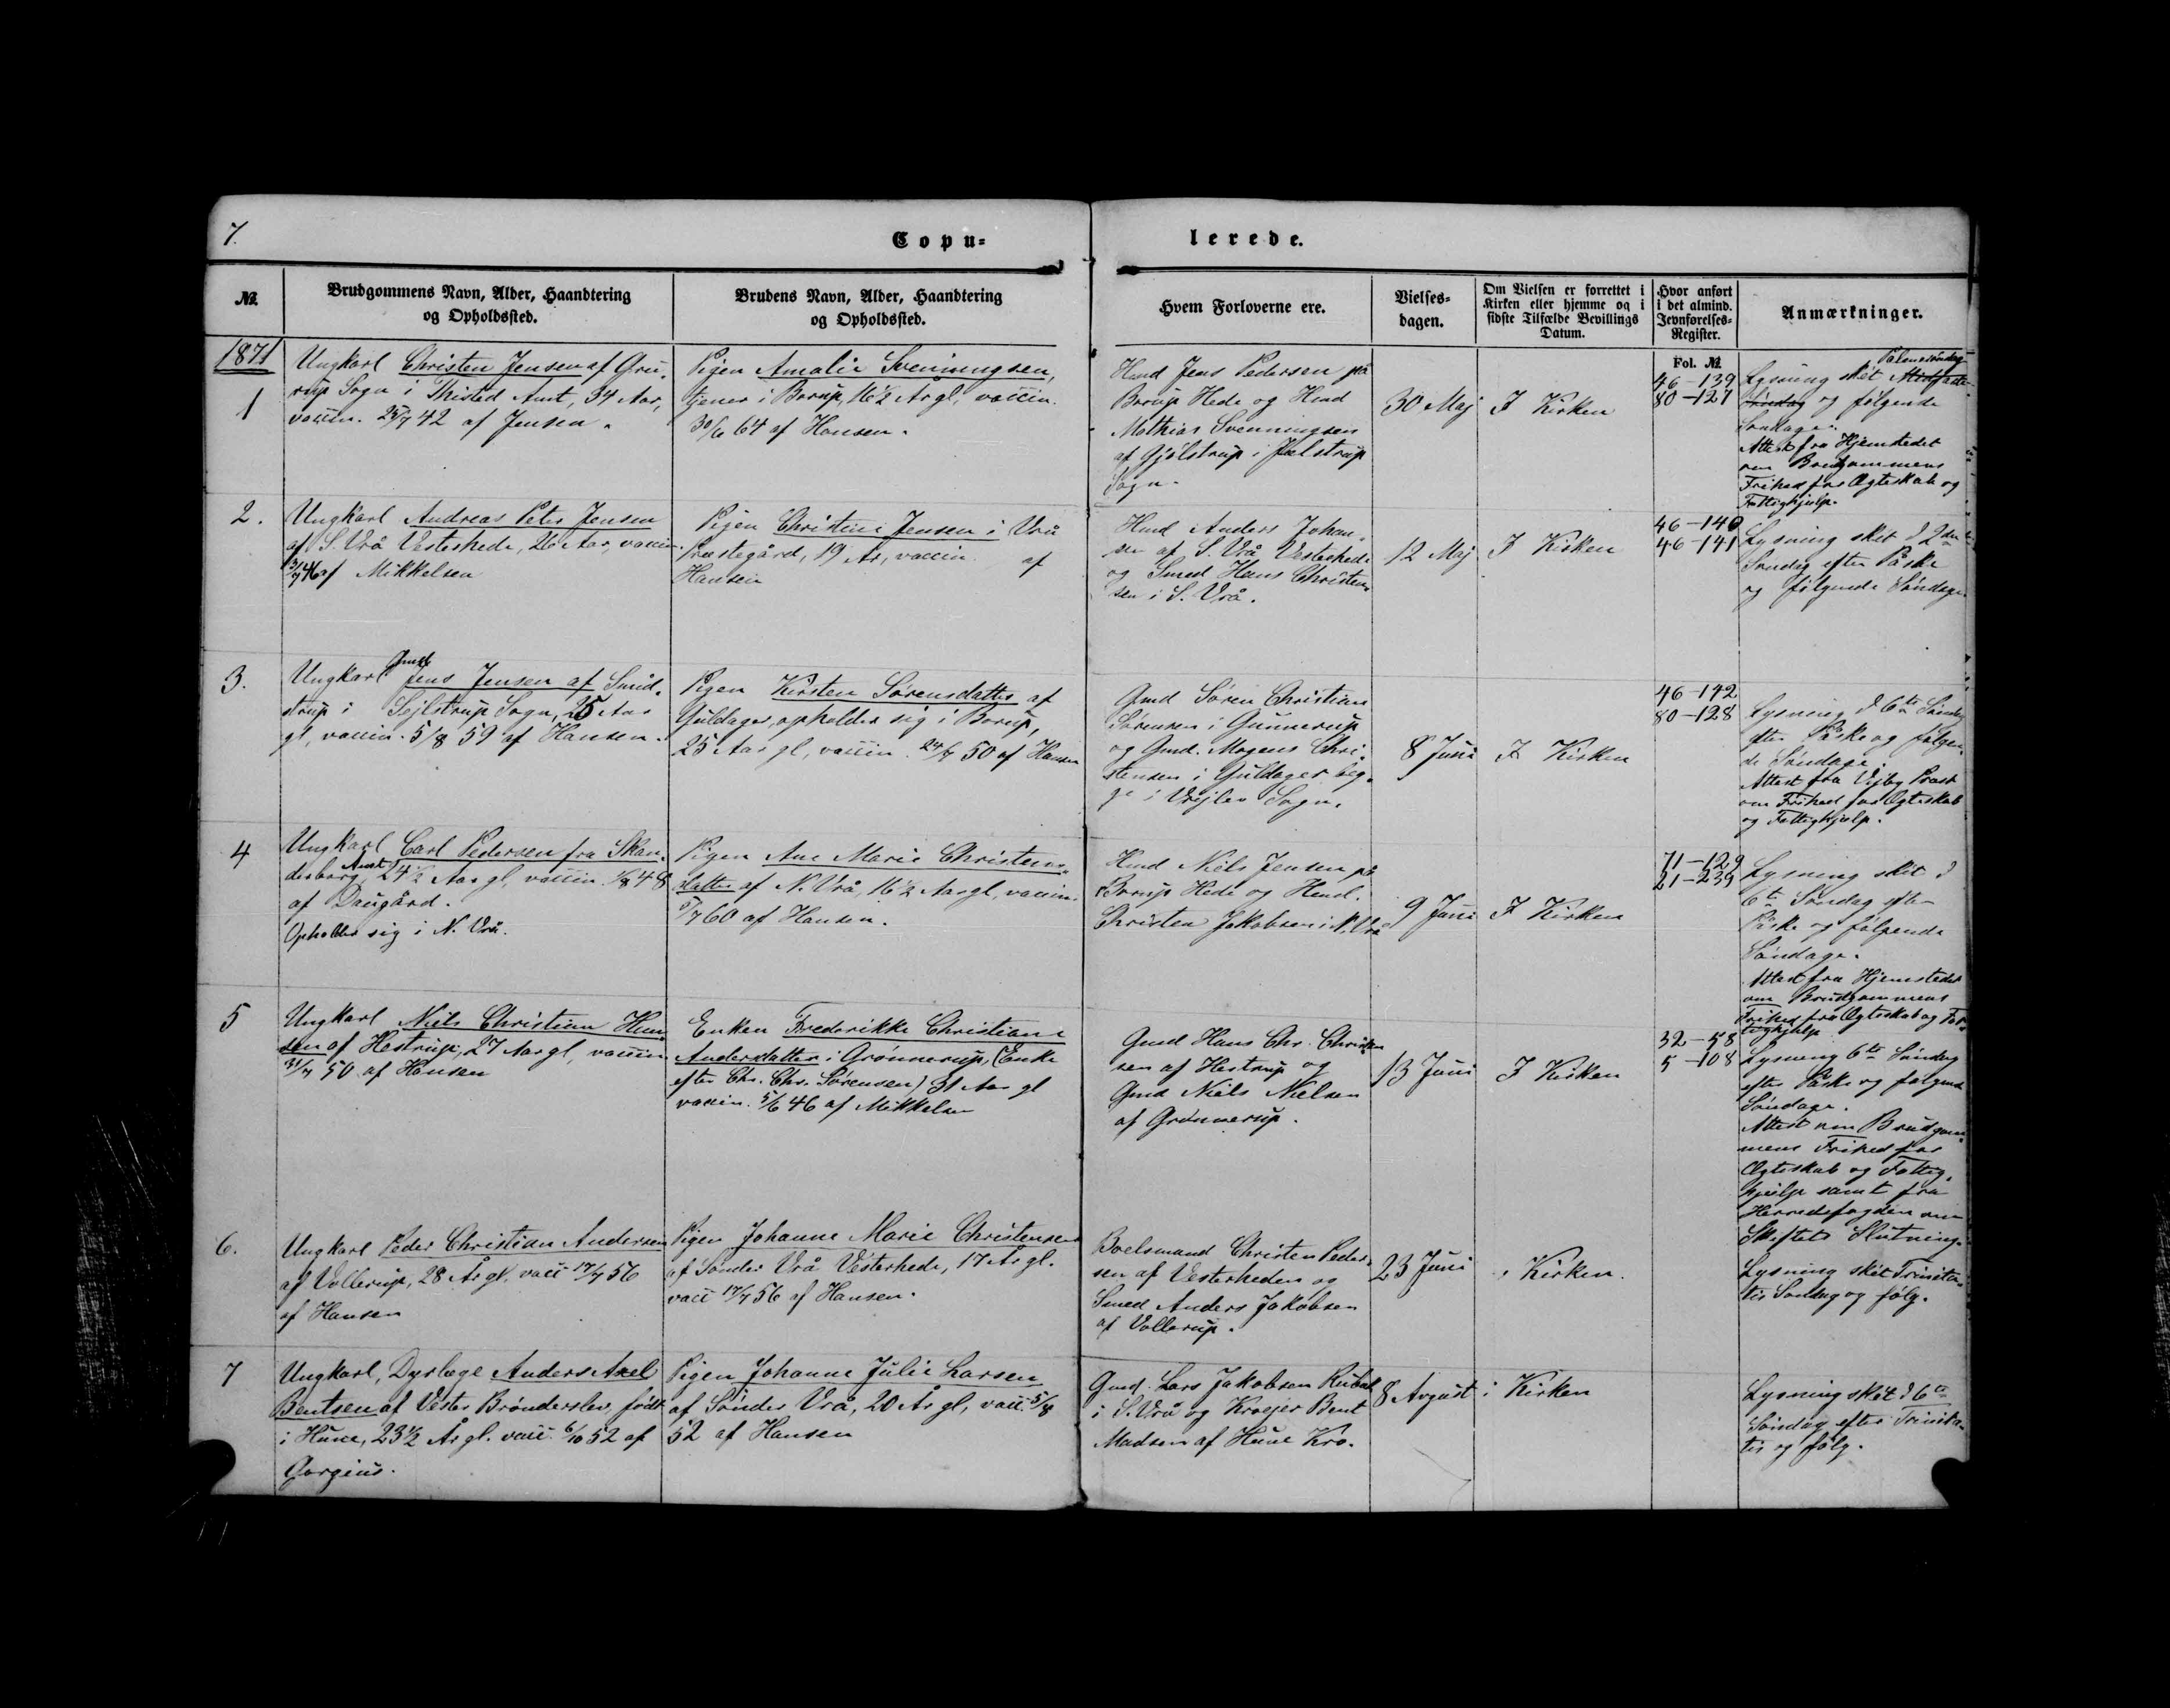 7.
Copu=
lerede.
№
Brudgommens Navn, Alder, Haandtering
og Opholdssted.
Brudens Navn, Alder, Haandtering
og Opholdssted.
Hvem Forloverne ere.
Vielses=
dagen.
Om Vielsen er forrettet i
Kirken eller hjemme og i
sidste Tilfælde Bevillings
Datum.
Hvor anført
i det almind.
Jevnførelses=
Register.
Anmærkninger.
Fol. №
1871
1
Ungkarl Christen Jensen af Gru-
rup Sogn i Thisted Amt, 34 Aar,
vaccin. 25/7 42 af Jensen.
Pigen Amalie Svenningsen,
tjener i Borup, 16½ År gl, vaccin.
30/6 64 af Hansen.
Hmd Jens Pedersen på
Borup Hede og Hmd
Mathias Svenningsen
af Gjølstrup i Jelstrup
Sogn.
30 Maj
I Kirken
46-139
80-127
Palmesøndag
Lysning skét Midfaste
Søndag og følgende
Søndage.
Attest fra Hjemstedet
om Brudgommens
Frihed for Ægteskab og
Fattighjelp.
2.
Ungkarl Andreas Peter Jensen
af S. Vrå Vesterhede, 26 Aar, vaccin.
3/7 46 af Mikkelsen
Pigen Christine Jensen i Vrå
Præstegård, 19 Ar, vaccin. af
Hansen
Hmd Anders Johan-
sen af S. Vrå Vesterhede
og Smed Hans Christen-
sen i S. Vrå.
12 Maj
I Kirken
46-140
46-141
Lysning skét d 2den
Søndag efter Påske
og følgende Søndage.
3.
Gmd
Ungkarl Jens Jensen af Smid-
strup i Sejlstrup Sogn, 25 Aar
gl, vaccin. 5/8 59 af Hansen.
Pigen Kirsten Sørensdatter af
Guldager, opholder sig i Borup,
25 Aar gl, vaccin. 24/7 50 af Hansen
Gmd Søren Christian
Sørensen i Gunnerup
og Gmd. Mogens Chri-
stensen i Guldager beg-
ge i Vrejlev Sogn.
8 Juni
I Kirken
46-142
80-128
Lysning d 6te Søndag
efter Påske og følgen-
de Søndage.
Attest fra Vejby Præst
om Frihed for Ægteskab
og Fattighjelp.
4
Ungkarl Carl Pedersen fra Skan-
derborg Amt, 24½ Aar gl, vaccin. 1/8 48
af Daugård.
Opholder sig i N. Vrå.
Pigen Ane Marie Christens-
datter af N. Vrå, 16½ Aar gl, vaccin.
/7 60 af Hansen.
Hmd Niels Jensen på
Borup Hede og Hmd.
Christen Jakobsen i N. Vrå
9 Juni
I Kirken
71-129
21-239
Lysning skét d
6te Søndag efter
Påske og følgende
Søndage.
Attest fra Hjemstedet
om Brudgommens
Frihed fra Ægteskab og Fat-
tighjelp
5
Ungkarl Niels Christian Han-
sen af Hestrup, 27 Aar gl, vaccin
21/7 50 af Hansen
Enken Frederikke Christiane
Andersdatter i Grønnerup, (Enke
efter Chr. Chr. Sørensen) 31 Aar gl
vaccin. 5/6 46 af Mikkelsen
Gmd Hans Chr. Christen
sen af Hestrup og
Gmd Niels Nielsen
af Grønnerup.
13 Juni
I Kirken
32-58
5-108
Lysning 6te Søndag
efter Påske og følgende
Søndage.
Attest om Brudgom-
mens Frihed for
Ægteskab og Fattig-
hjelp samt fra
Herredsfogden om
Skiftets Slutning.
6.
Ungkarl Peder Christian Andersen
af Vollerup, 28 År gl, vacc 17/7 56
af Hansen
Pigen Johanne Marie Christensen
af Sønder Vrå Vesterhede, 17 År gl.
vacc 17/7 56 af Hansen.
Boelsmand Christen Peder-
sen af Vesterheden og
Smed Anders Jakobsen
af Vollerup.
23 Juni
i Kirken.
Lysning skét Trinita-
tis Søndag og følg.
7
Ungkarl, Dyrlæge Anders Axel
Bentsen af Vester Brønderslev, født
i Hune, 23½ År gl. vacc. 6/10 52 af
Gorgius.
Pigen Johanne Julie Larsen
af Sønder Vrå, 20 År gl, vacc. 5/8
52 af Hansen
Gmd. Lars Jakobsen Rubak
i S. Vrå og Kroejer Bent
Madsen af Hune Kro.
8 Avgust
i Kirken
Lysning skét d 6te
Søndag efter Trinita-
tis og følg.